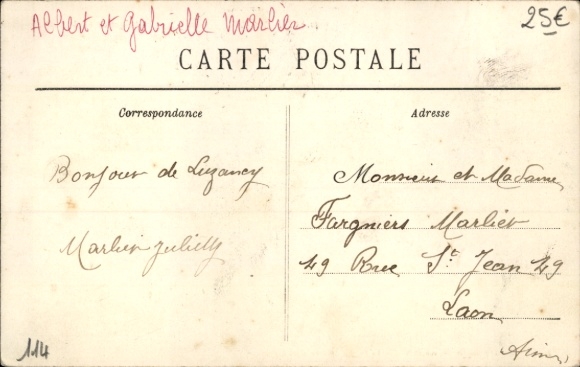 Albert et Gabrielle Marlier.
25€
CARTE POSTALE
Correspondance
Adresse
Bonjour de Luzancy
Marlier Juliette
Monsieur et Madame
Fargniers Marlier
49 Rue St. Jean 49
Laon
Aisne
114